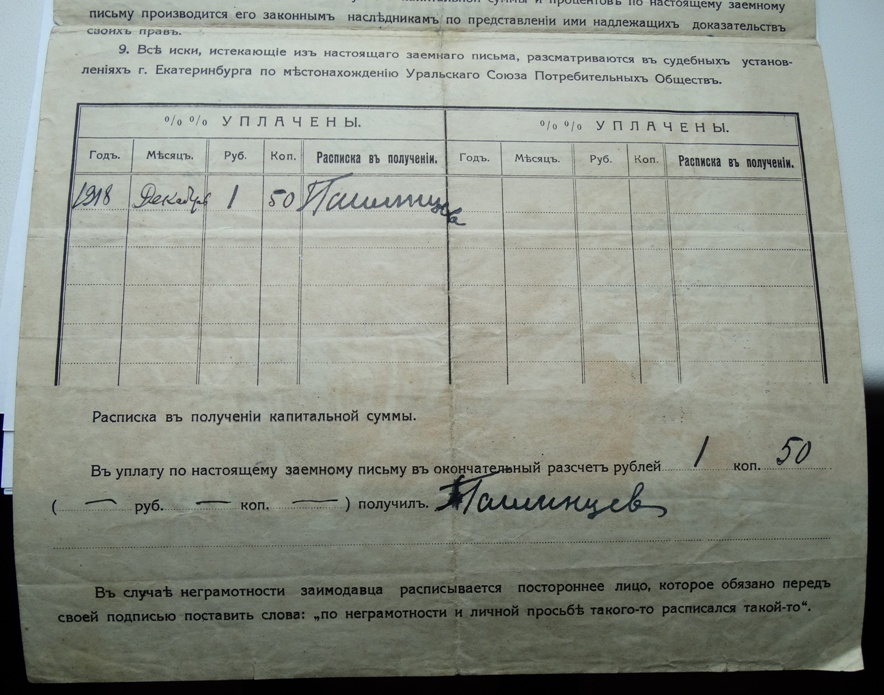 капитальной суммы и процентовъ по настоящему заемному
письму производится его законнымъ наслѣдникамъ по представленіи ими надлежащихъ доказательствъ
своихъ правъ.
9. Всѣ иски, истекающіе изъ настоящаго заемнаго письма, разсматриваются въ судебныхъ установ-
леніяхъ г. Екатеринбурга по мѣстонахожденію Уральскаго Союза Потребительныхъ Обществъ.
% % УПЛАЧЕНЫ. % % УПЛАЧЕНЫ.
Годъ. Мѣсяцъ. Руб. Коп. Расписка въ полученіи. Годъ. Мѣсяцъ. Руб. Коп. Расписка въ полученіи.
1918 Декабря 1 50
Расписка въ полученіи капитальной суммы.
Въ уплату по настоящему заемному письму въ окончательный разсчетъ рублей 1 коп. 50
( — руб. — коп. — ) получилъ.
Въ случаѣ неграмотности заимодавца расписывается постороннее лицо, которое обязано передъ
своей подписью поставить слова: „по неграмотности и личной просьбѣ такого-то расписался такой-то“.